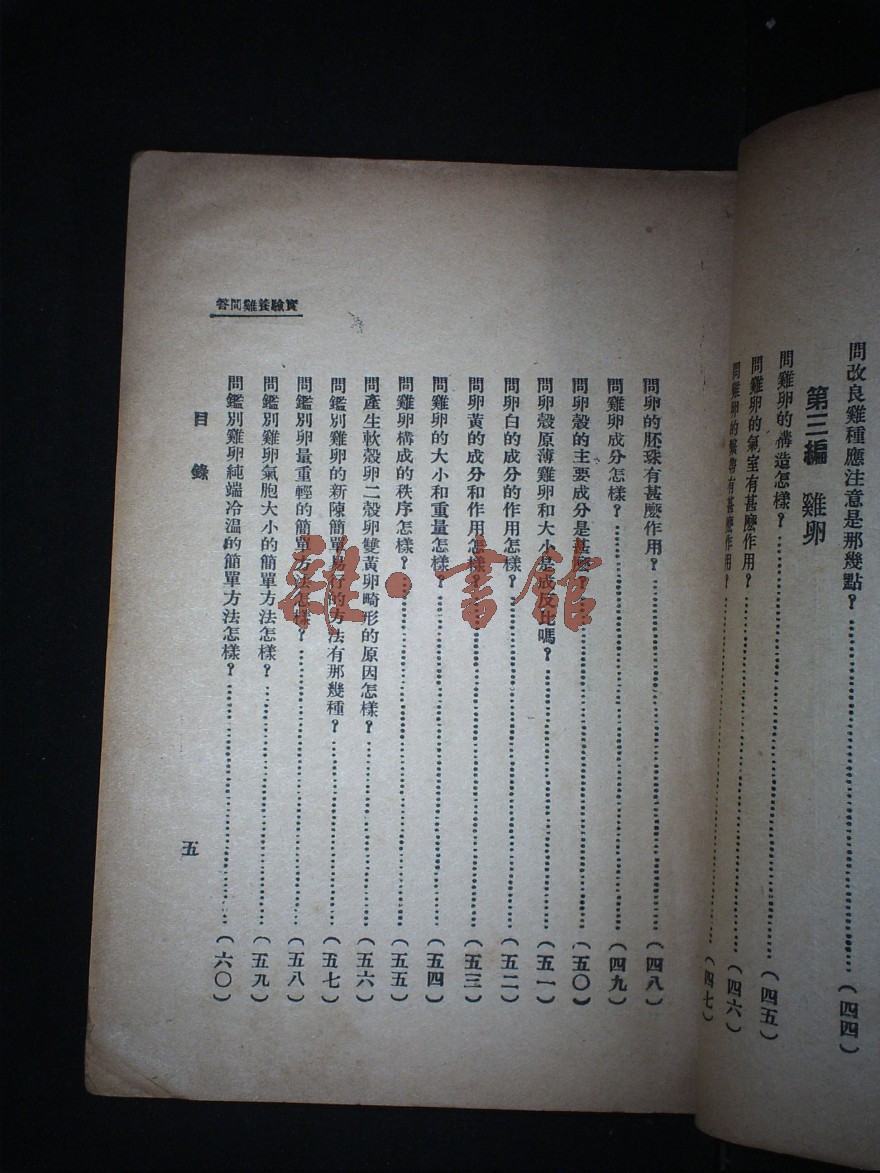 問改良雞種應注意是那幾點？……（四四）
第三編　雞卵
問雞卵的構造怎樣？……（四五）
問雞卵的氣室有甚麼作用？……（四六）
問雞卵的繫帶有甚麼作用？……（四七）
問卵的胚珠有甚麼作用？……（四八）
問雞卵成分怎樣？……（四九）
問卵殼的主要成分是甚麼？……（五〇）
問卵殼原薄雞卵和大小是成反比嗎？……（五一）
問卵白的成分的作用怎樣？……（五二）
問卵黃的成分和作用怎樣？……（五三）
問雞卵的大小和重量怎樣？……（五四）
問雞卵構成的秩序怎樣？……（五五）
問產生軟殼卵二殼卵雙黃卵畸形的原因怎樣？……（五六）
問鑑別雞卵的新陳簡單易行的方法有那幾種？……（五七）
問鑑別卵量重輕的簡單方法怎樣？……（五八）
問鑑別雞卵氣胞大小的簡單方法怎樣？……（五九）
問鑑別雞卵純端冷溫的簡單方法怎樣？……（六〇）
目錄
五
實驗養雞問答
雜·書館